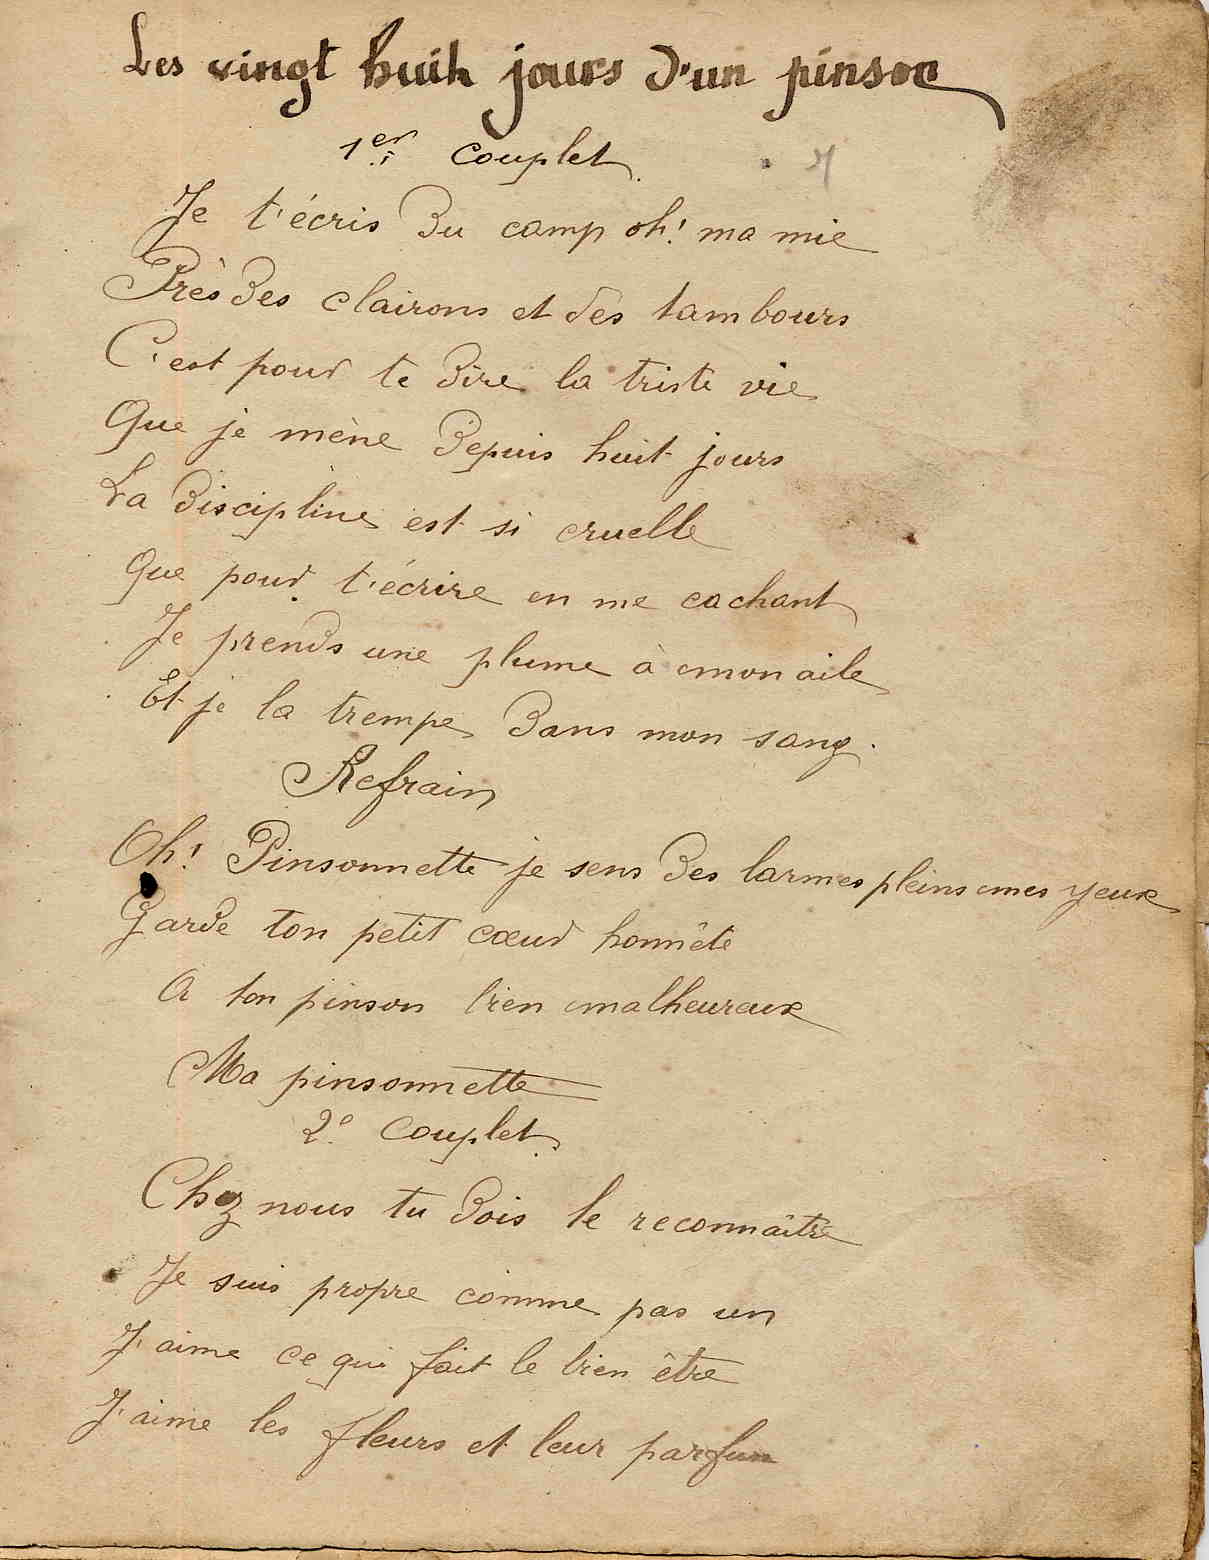 Les vingt huit jours d'un pinson
1er couplet.
Je t'écris du camp oh! ma mie
Près des clairons et des tambours
C'est pour te dire la triste vie
Que je mène depuis huit jours
La discipline est si cruelle
Que pour t'écrire en me cachant
Je prends une plume à mon aile
Et je la trempe dans mon sang.
Refrain
Oh! Pinsonnette je sens des larmes pleins mes yeux
Garde ton petit cœur honnête
A ton pinson bien malheureux
Ma pinsonnette
2e Couplet.
Chez nous tu dois le reconnaître
Je suis propre comme pas un
J'aime ce qui fait le bien être
J'aime les fleurs et leur parfum